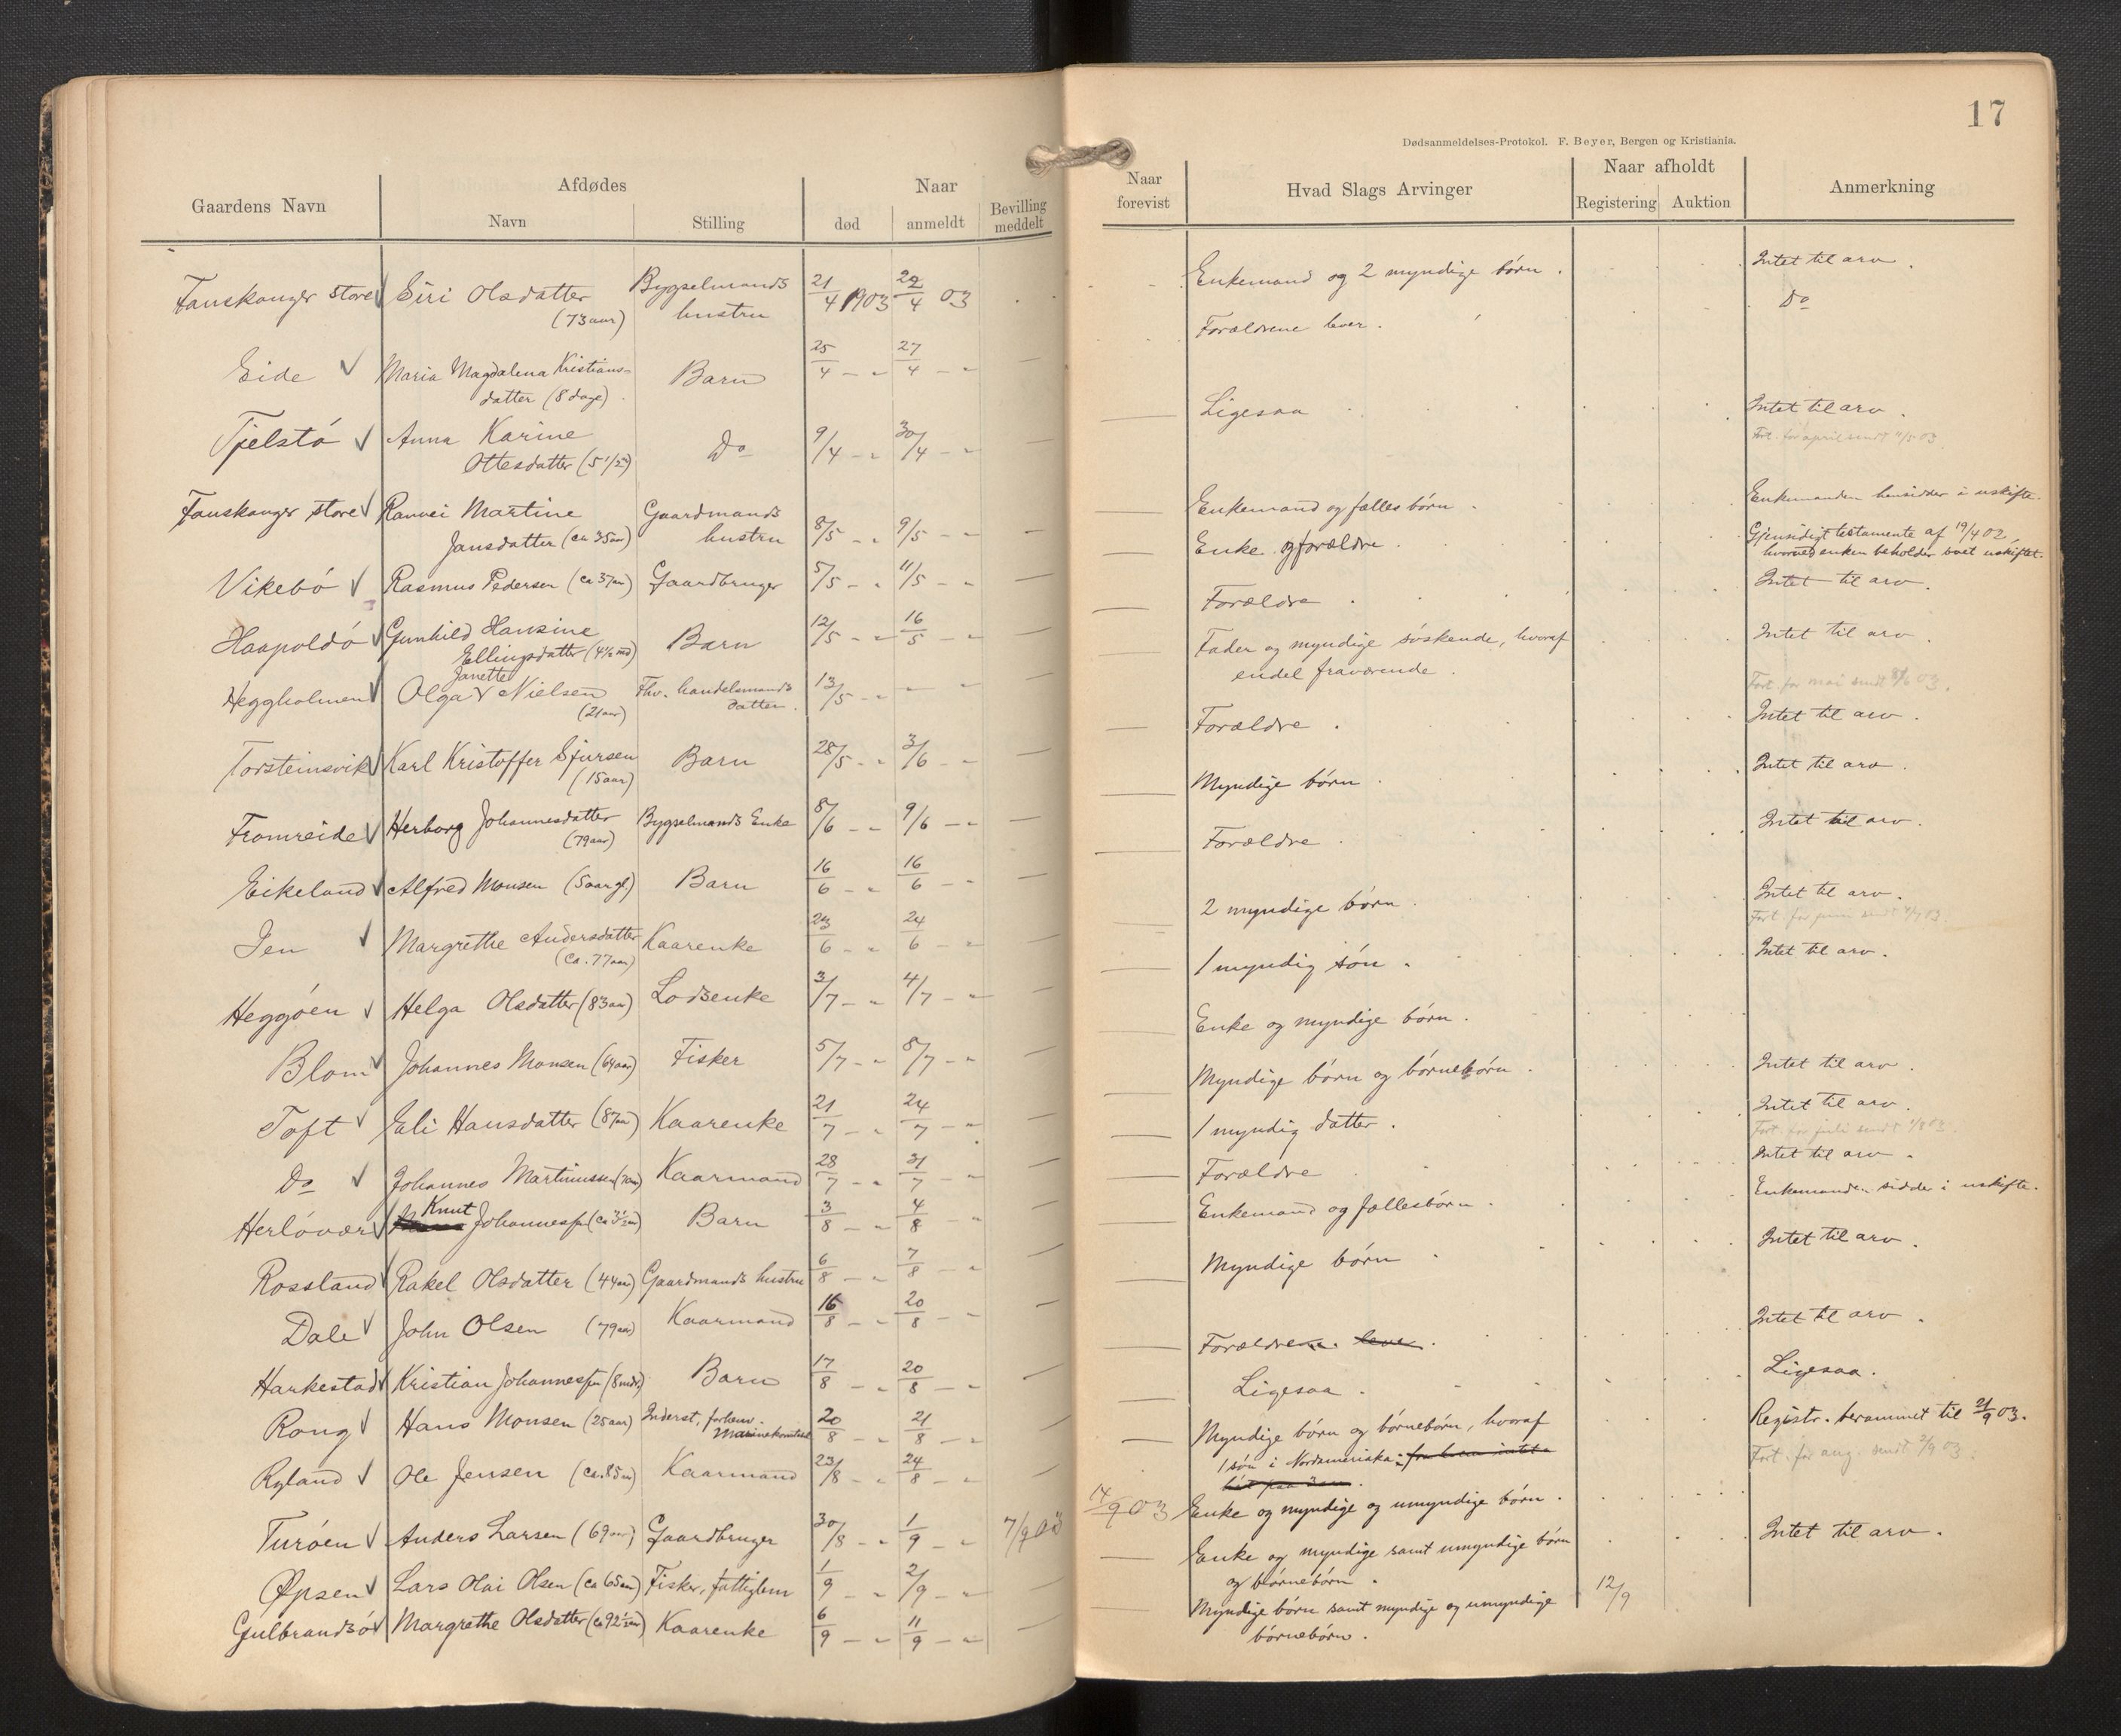 17
Dødsanmeldelses-Protokol. F. Beyer, Bergen og Kristiania.
Gaardens Navn
Afdødes
Navn
Stilling
Naar
død
anmeldt
Bevilling meddelt
Naar forevist
Hvad Slags Arvinger
Naar afholdt
Registering
Auktion
Anmerkning
Fauskanger store Siri Olsdatter Bygselmands 21/4 1903 22/4 03
(73 aar) hustru
Eide Maria Magdalena Kristians- Barn 25/4 – " 27/4 – "
datter (8 dage)
Tjelstø Anna Karine Do 9/4 – " 30/4 – "
Ottesdatter (5 1/2
Fauskanger store Rannei Martine Gaardmands 8/5 – " 9/5 – "
Jansdatter (ca 35 aar) hustru
Vikebø Rasmus Pedersen (ca 37 aar) Gaardbruger 5/5 – " 11/5 – "
Haapoldø Gunhild Hansine Barn 12/5 – " 16/5 – "
Ellingsdatter (4 1/2 md)
Janette
Heggholmen Olga Nielsen Fhv. handelsmands 13/5 – " – "
(21 aar) datter.
Torsteinsvik Karl Kristoffer Sjursen Barn 28/5 – " 3/6 – "
(15 aar)
Fromreide Herborg Johannesdatter Bygselmands Enke 8/6 – " 9/6 – "
(79 aar)
Eikeland Alfred Monsen (5 aar gl) Barn 16/6 – " 16/6 – "
Margrethe Andersdatter Kaarenke 23/6 – " 24/6 – "
(Ca. 77 aar)
Heggøen Helga Olsdatter (83 aar) Lodsenke 3/7 – " 4/7 – "
Blom Johannes Monsen (64 aar) Fisker 5/7 – " 8/7 – "
Toft Eli Hansdatter (87 aar) Kaarenke 21/7 – " 24/7 – "
Do Johannes Martinussen Kaarmand 28/7 – " 31/7 – "
Knut
Herløvær Johannessen (ca 3 1/2 aar) Barn 3/8 – " 4/8 – "
Rossland Rakel Olsdatter (44 aar) Gaardmands hustru 6/8 – " 7/8 – "
Dale John Olsen (79 aar) Kaarmand 16/8 – " 20/8 – "
Harkestad Kristian Johannessen (8 mdr) Barn 17/8 – " 20/8 – "
Rong Hans Monsen (25 aar) Inderst, forhenv. 20/8 – " 21/8 – "
Ryland Ole Jensen (ca. 85 aar) Kaarmand 23/8 – " 24/8 – "
Turøen Anders Larsen (69 aar) Gaardbruger 30/8 – " 1/9 – " 7/9 03
Øpsen Lars Olai Olsen (ca 65 aar) Fisker, fattiglem 1/9 – " 2/9 – "
Gulbrandsø Margrethe Olsdatter (ca 92 1/2 aar) Kaarenke 6/9 – " 11/9 – "
Enkemand og 2 myndige børn. Intet til arv.
Forældrene lever. Do
Ligesaa Intet til arv.
Fort. for april sendt 4/5 03
Enkemand og fælles børn Enkemanden hensidder i uskifte.
Enke og forældre Gjensidigt testamente af 19/4 02,
hvorved enken beholder boet uskiftet.
Forældre Intet til arv.
Fader og myndige søskende, hvoraf Intet til arv
endel fraværende.
Fort. for mai sendt 03.
Forældre Intet til arv.
Myndige børn Intet til arv.
Forældre Intet til arv.
2 myndige børn Intet til arv.
Fort. for juni sendt 03.
1 myndig søn. Intet til arv.
Enke og myndige børn.
Myndige børn og børnebørn. Intet til arv.
1 myndig datter. Intet til arv.
Fort. for juli sendt 1/8 03.
Forældre Intet til arv.
Enkemand og fællesbørn Enkemanden sidder i uskifte.
Myndige børn Intet til arv.
Forældrene. leve. Intet til arv.
Ligesaa. Ligesaa.
Myndige børn og børnebørn, hvoraf Registr. berammet til 21/9 03.
1 søn i Nordamerika
Fort. for aug. sendt 2/9 03.
14/9 03 Enke og myndige og umyndige børn.
Enke og myndige samt umyndige børn Intet til arv.
og børnebørn.
Myndige børn samt myndige og umyndige 12/9
børnebørn.